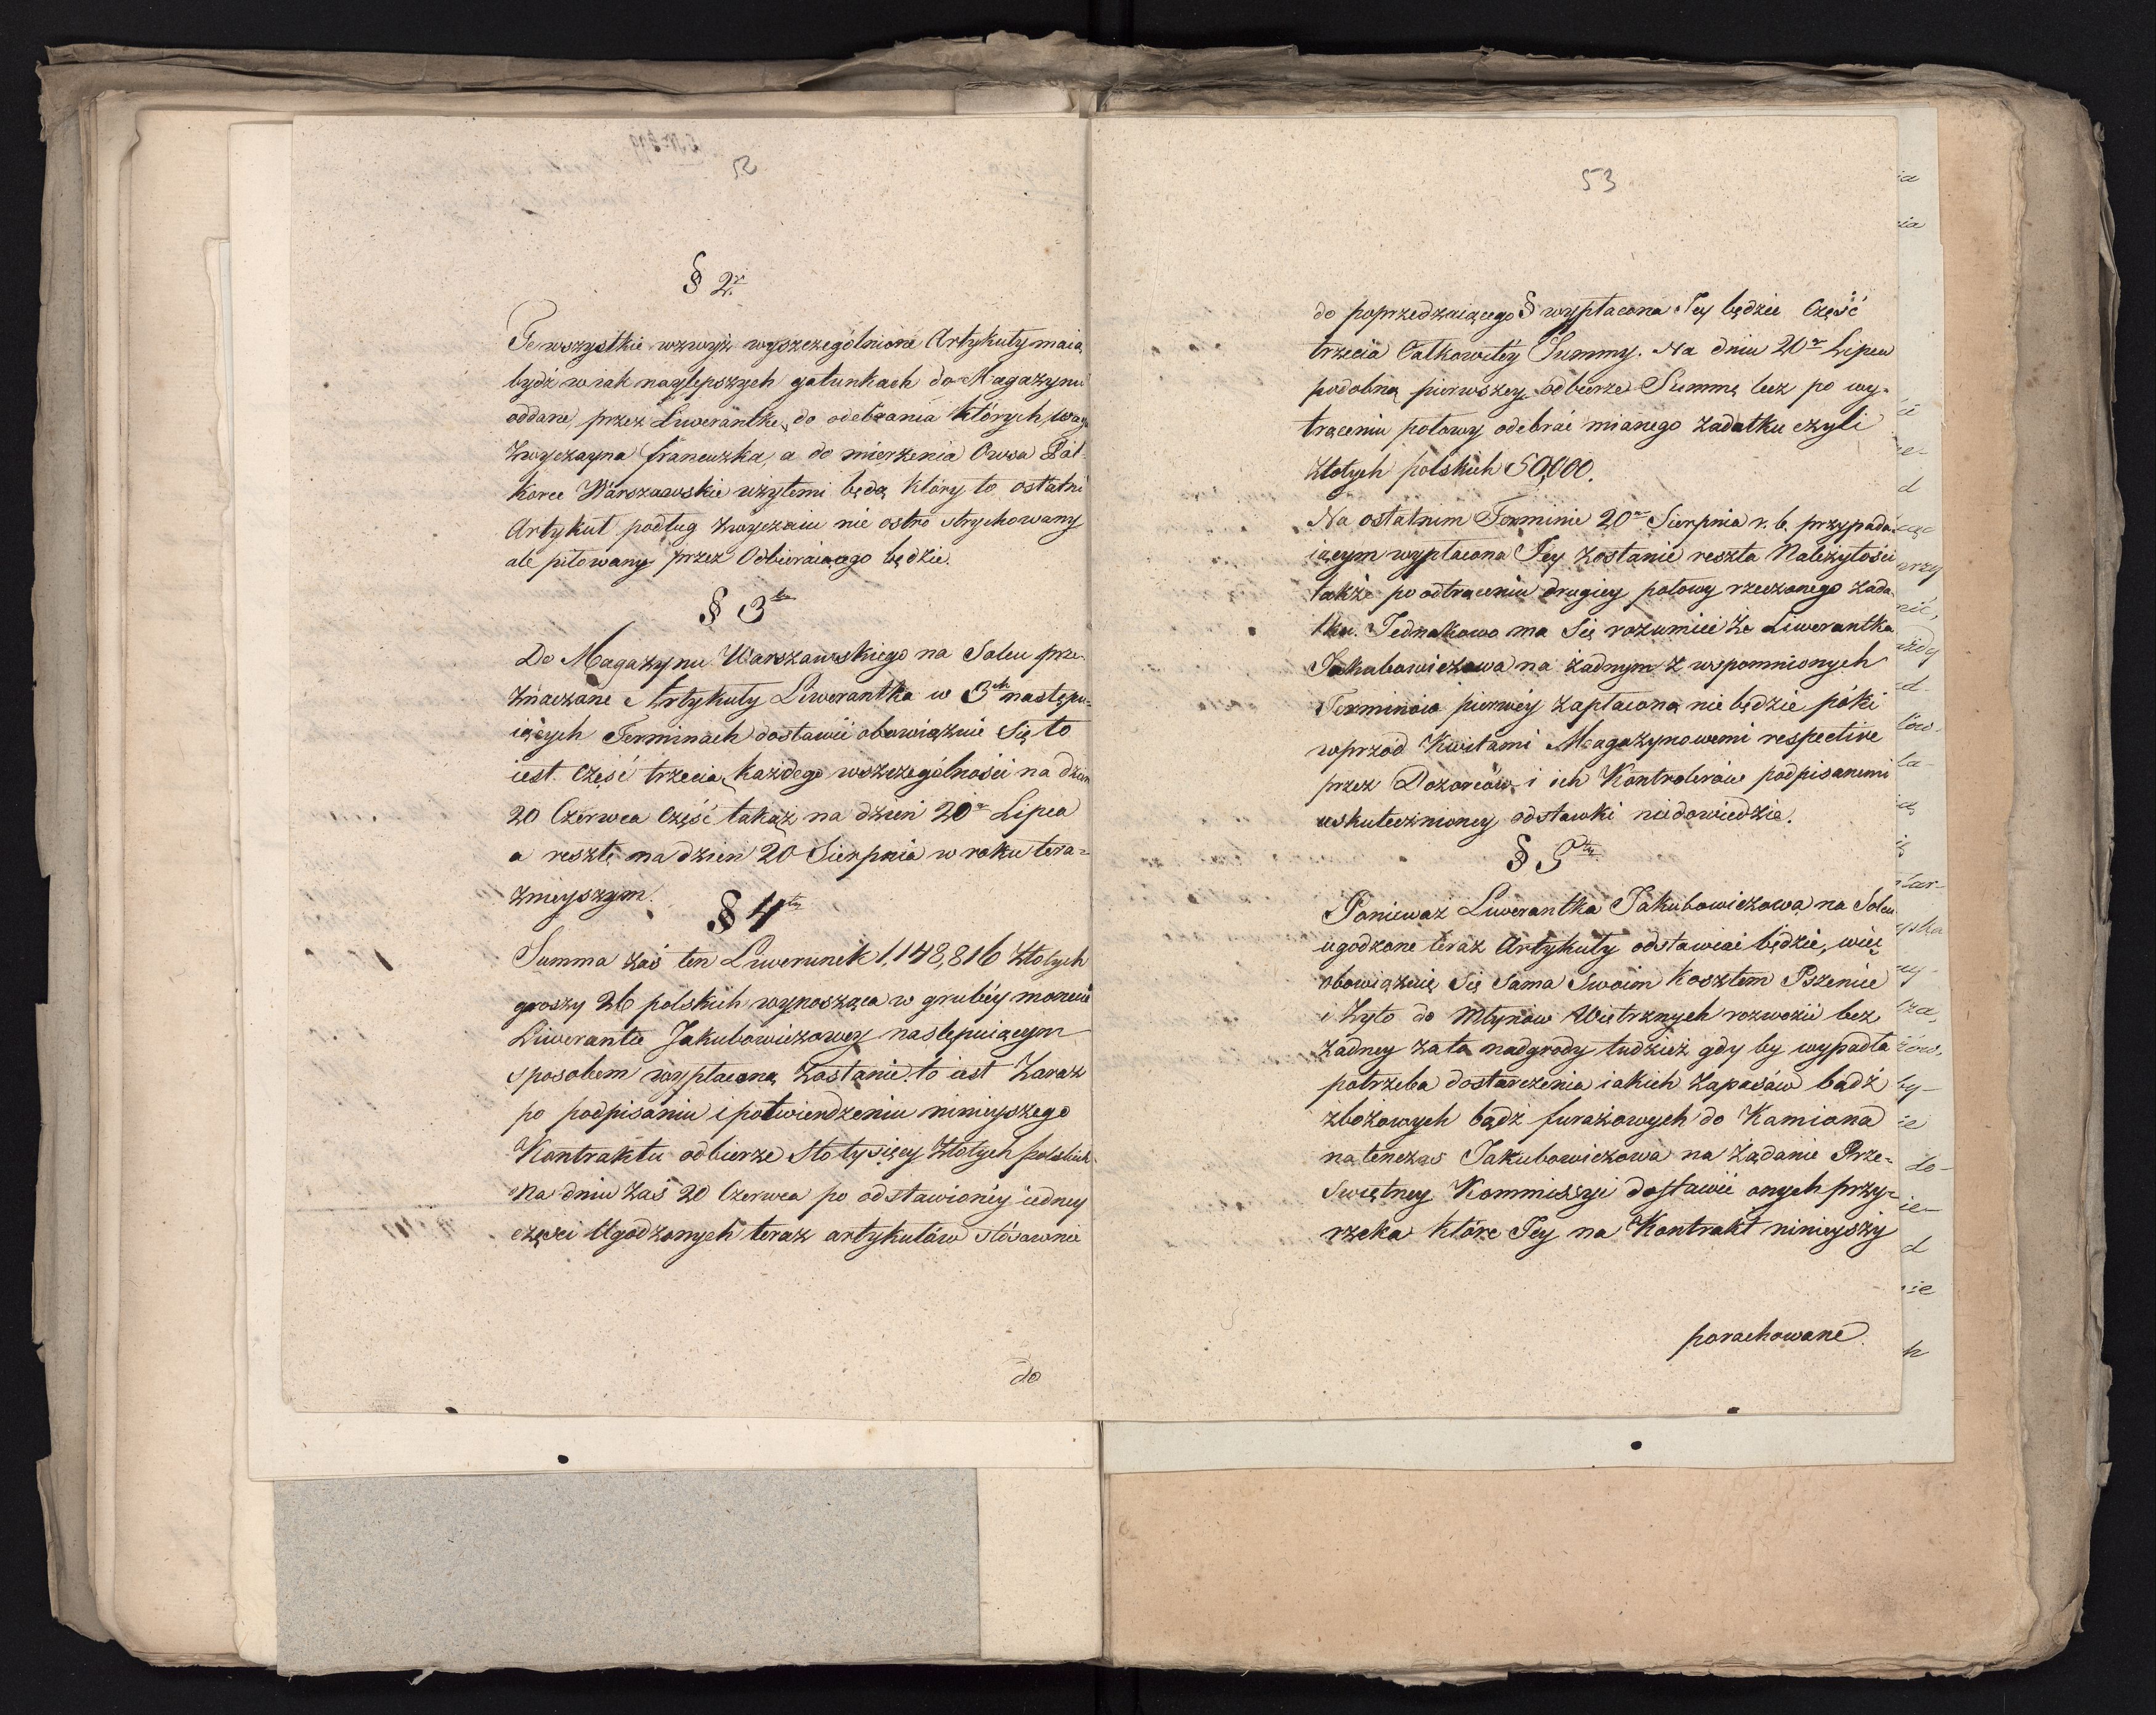 52
§ 2.
Te wszystkie wzwyż wyszczególnione Artykuły maią
bydź w iak naylepszych gatunkach do Magazynu
oddane, przez Liwerantkę, do odebrania których, waga
zwyczayna francuzka, a do mierzenia Owsa Pół-
korce Warszawskie użytemi będą, który to ostatni
Artykuł podług zwyczaiu nie ostro strychowany
ale piłowany przez Odbieraiącego będzie.
§ 3
Do Magazynu Warszawskiego na Solcu prze-
znaczone Artykuły Liwerantka w 3ch następu-
iących Terminach dostawić obowiązuie się to
iest. Część trzecią każdego wszczególności na dzień
20 Czerwca Część takąż na dzień 20 Lipca
a resztę na dzień 20 Sierpnia w roku tera-
znieyszym.
§ 4ty
Summa zaś ten Liwerunek 1,148,816 Złotych
groszy 26 polskich wynosząca w grubéy monecie
Liwerantce Jakubowiczowey następuiącym
sposobem wypłaconą zostanie. to iest Zaraz
po podpisaniu i potwierdzeniu ninieyszego
Kontraktu odbierze Sto tysięcy Złotych polskich.
Na dniu zaś 20 Czerwca po odstawionéy iedney
części Ugodzonych teraz artykułów stósownie
do
53
do poprzedzaiącego § wypłacona Jey będzie Część
trzecia Całkowitéy Summy. Na dniu 20 Lipca
podobną pierwszey odbierze Summę lecz po wy-
trąceniu połowy odebrać mianego zadatku czyli
złotych polskich 50,000.
Na ostatnim Terminie 20 Sierpnia r. b. przypada-
iącym wypłacona Jey zostanie reszta Należytości
także po odtrąceniu drugiey połowy rzeczonego zada-
tku. Jednakowo ma się rozumieć że Liwerantka
Jakubowiczowa na żadnym z wspomnionych
Terminów pierwéy zapłaconą nie będzie póki
wprzód Kwitami Magazynowemi respective
przez Dozorców i ich Kontrolerów podpisanemi
uskutecznioney odstawki niedowiedzie.
§ 5ty
Ponieważ Liwerantka Jakubowiczowa na Solcu
ugodzone teraz Artykuły odstawiać będzie, więc
obowiązuię się sama Swoim kosztem Pszenice
i Żyto do Młynów Wietrznych rozwozić bez
żadney zata nadgrody tudzież gdy by wypadła
potrzeba dostarczenia iakich zapasów bądź
zbożowych bądź furażowych do Kamiona
natenczas Jakubowiczowa na żądanie Prze-
świętney Kommissyi dostawić onych przy-
rzeka które Jey na Kontrakt ninieyszy
porachowane